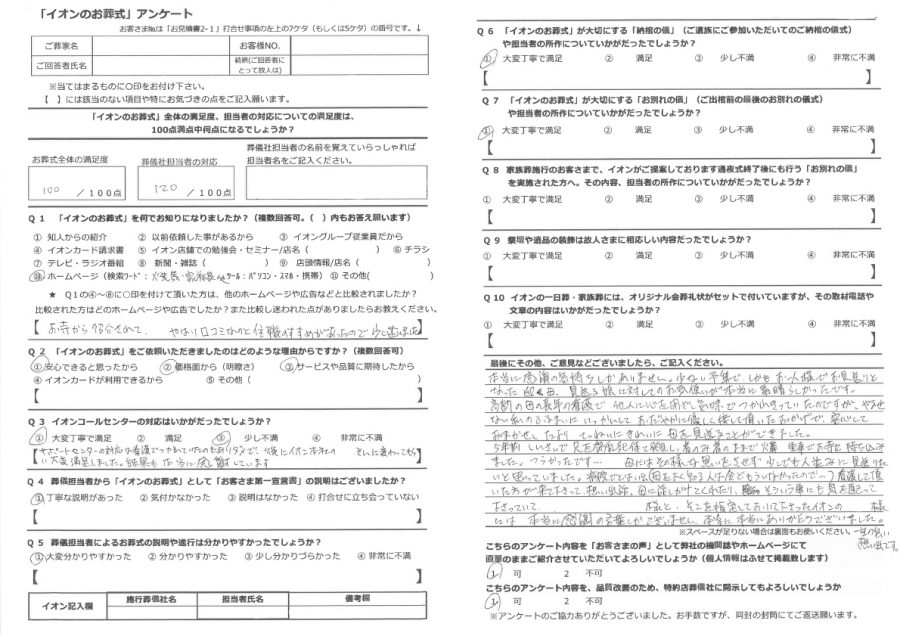 「イオンのお葬式」アンケート
お客さま№は「お見積書2-1」打合せ事項の左上の7ケタ（もしくは5ケタ）の番号です。↓
ご葬家名
お客様NO.
ご回答者氏名
続柄（ご回答者にとって故人は）
※当てはまるものに○印をお付け下さい。
【　】には該当のない項目や特にお気づきの点をご記入願います。
「イオンのお葬式」全体の満足度、担当者の対応についての満足度は、
100点満点中何点になるでしょうか？
お葬式全体の満足度
葬儀社担当者の対応
葬儀社担当者の名前を覚えていらっしゃれば
担当者名をご記入ください。
100 /100点
120 /100点
Q 1　「イオンのお葬式」を何でお知りになりましたか？（複数回答可。（　）内もお答え願います）
① 知人からの紹介　② 以前依頼した事があるから　③ イオングループ従業員だから
④ イオンカード請求書　⑤ イオン店舗での勉強会・セミナー/店名（　）　⑥ チラシ
⑦ テレビ・ラジオ番組　⑧ 新聞・雑誌（　）　⑨ 店頭情報/店名（　）
⑩ ホームページ（検索ワード：火葬式・家族葬 ツール：パソコン・スマホ・携帯）⑪ その他（　）
★　Q1の④～⑧に○印を付けて頂いた方は、他のホームページや広告などと比較されましたか？
比較された方はどのホームページや広告でしたか？また比較し迷われた点がありましたらお教えください。
【お寺から紹介されて、やはり口コミ　と住職のすすめがあったので少し迷いました】
Q 2　「イオンのお葬式」をご依頼いただきましたのはどのような理由からですか？（複数回答可）
①安心できると思ったから　②価格面から（明瞭さ）　③サービスや品質に期待したから
④イオンカードが利用できるから　⑤ その他（　）
【　】
Q 3　イオンコールセンターの対応はいかがだったでしょうか？
① 大変丁寧で満足　②　満足　③　少し不満　④　非常に不満
Q 4　葬儀担当者から「イオンとして「お客さま第一宣言書」の説明はございましたか？
①丁寧な説明があった　② 気付かなかった　③ 説明はなかった　④ 打合せに立ち会っていない
【　】
Q 5　葬儀担当者によるお葬式の説明や進行は分かりやすかったでしょうか？
①大変分かりやすかった　② 分かりやすかった　③ 少し分かりづらかった　④ 非常に不満
【　】
イオン記入欄
施行葬儀社名
担当者氏名
備考欄
Q 6　「イオンのお葬式」が大切にする「納棺の儀」（ご遺族にご参加いただいてのご納棺の儀式）
や担当者の所作についていかがだったでしょうか？
① 大変丁寧で満足　②　満足　③　少し不満　④　非常に不満
【　】
Q 7　「イオンのお葬式」が大切にする「お別れの儀」（ご出棺前の最後のお別れの儀式）
や担当者の所作についていかがだったでしょうか？
① 大変丁寧で満足　②　満足　③　少し不満　④　非常に不満
【　】
Q 8　家族葬施行のお客さまで、イオンがご提案しております通夜式終了後にも行う「お別れの儀」
を実施された方へ。その内容、担当者の所作についていかがだったでしょうか？
① 大変丁寧で満足　②　満足　③　少し不満　④　非常に不満
【　】
Q 9　祭壇や遺品の装飾は故人さまに相応しい内容だったでしょうか？
① 大変丁寧で満足　②　満足　③　少し不満　④　非常に不満
【　】
Q 10　イオンの一日葬・家族葬には、オリジナル会葬礼状がセットで付いていますが、その取材電話や
文章の内容はいかがだったでしょうか？
① 大変丁寧で満足　②　満足　③　少し不満　④　非常に不満
【　】
最後にその他、ご意見などございましたら、ご記入ください。
本当に感謝の気持ちしかありません。少ない予算で、しかもお一人様でお見送りと
なった 母、見送る娘に対してのお気使いが本当に素晴らしかったです。
高齢の母の長年の看護で 他人に心を閉ざし気味でつかれきっていたのですが、やるせ
ない私の心さまにいっかいしておだやかに優しく接して頂いたおかげで、安心して
おまかせしただき ていねいにきれいに母を見送ることができました。
ました。つらかったです… 母にはその様な思いをさせず 少しでも人並みに見送りた
様と、そこを指定しておいて下さったイオンの　様
には 本当に感謝の言葉しかございません。本当に本当にありがとうございました。
※スペースが足りない場合は裏面もお使いください。
一生の良い
想い出です。
こちらのアンケート内容を「お客さまの声」として弊社の機関誌やホームページにて
直筆のままご紹介させていただいてよろしいでしょうか（個人情報はふせて掲載致します）
1　可　2　不可
こちらのアンケート内容を、品質改善のため、特約店葬儀社に開示してもよろしいでしょうか
1　可　2　不可
※アンケートのご協力ありがとうございました。お手数ですが、同封の封筒にてご返送願います。